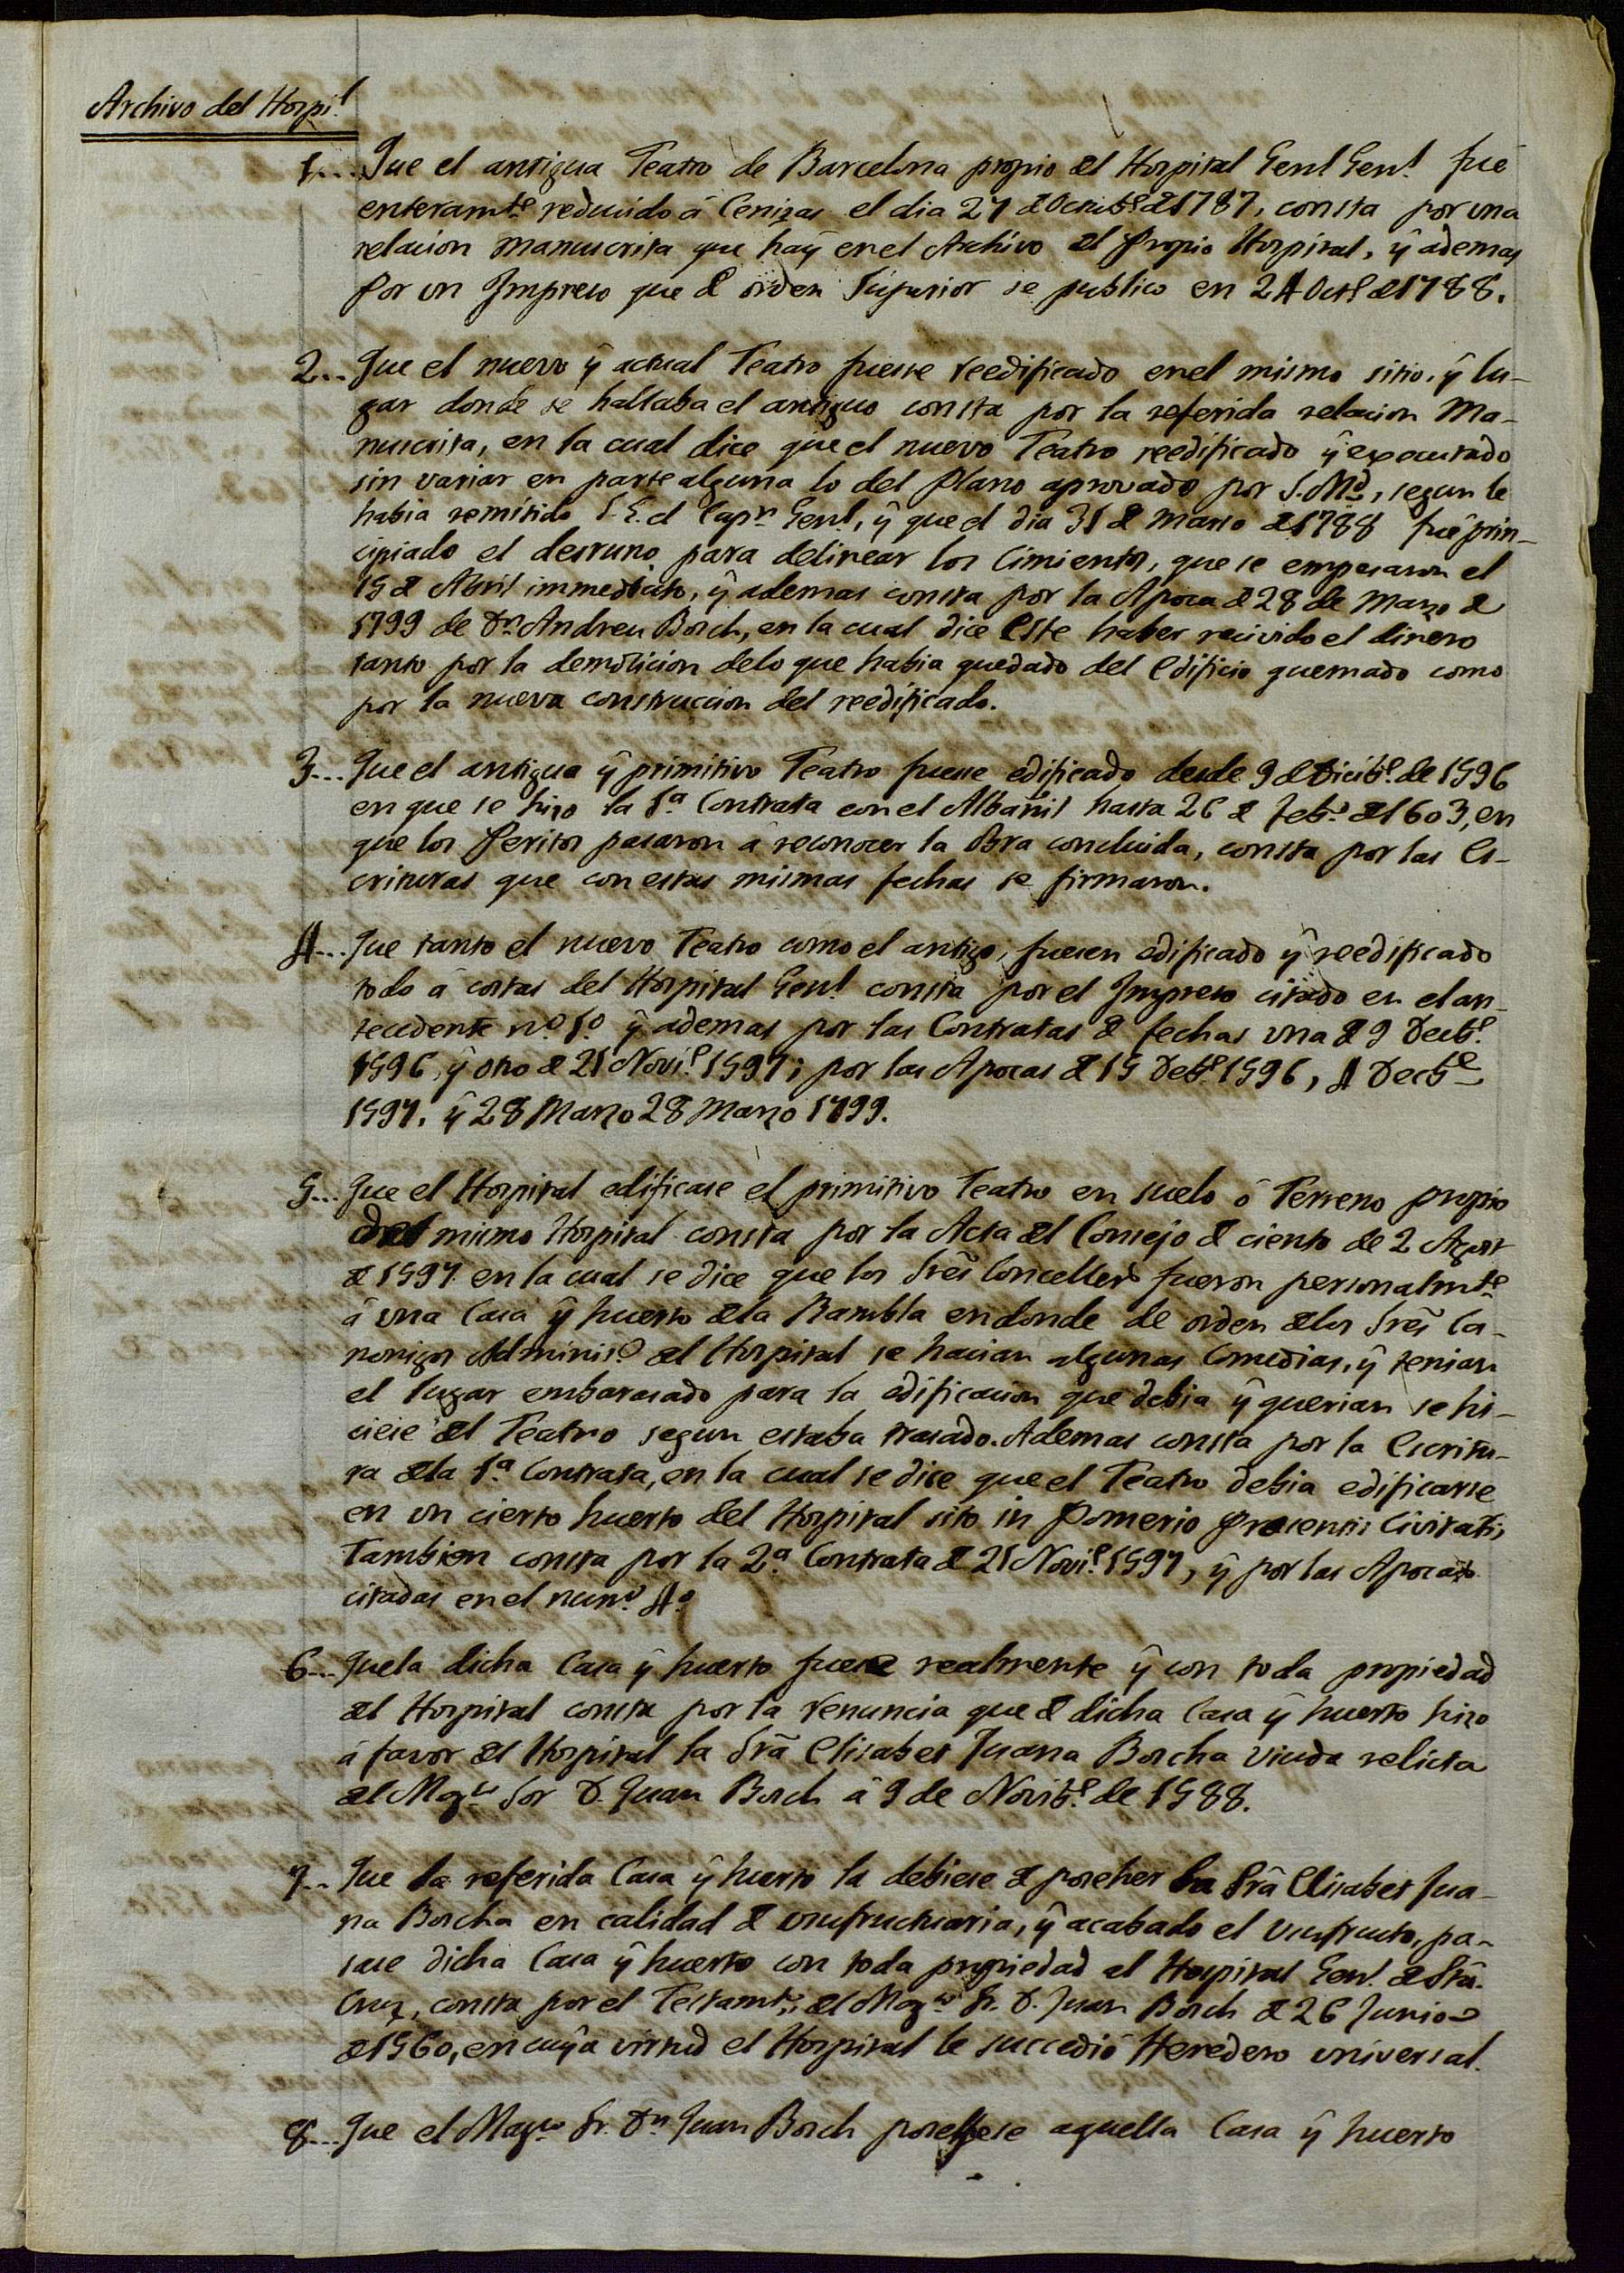 Archivo del Hospi.l
1... Que el antigua Teatro de Barcelona propio del Hospital Genl Gen.l fué
enteram.te reducido á Cenizas el dia 27 de Octub.e de 1787, consta por una
relacion manuscrita que haÿ en el Archivo del Propio Hospital, ÿ ademas
Por un Impreso que de orden Superior se publico en 24 Oct.e de 1788.
2... Que el nuevo ÿ actual Teatro fuesse reedificado en el mismo sitio, ÿ lu-
gar donde se hallaba el antiguo consta por la referida relacion Ma-
nuscrita, en la cual dice que el nuevo Teatro reedificado ÿ executado
sin variar en parte alguna lo del Plano aprovado por S. Md, segun le
habia remitido S. E. el Cap.n Gen.l, ÿ que el dia 31 de Marso de 1788 fué prin-
cipiado el desruno para delinear los Cimientos, que se empesaron el
15 de Abril immediato, ÿ ademas consta por la Apoca de 28 de Marzo de
1799 de Dn Andreu Bosch, en la cual dice Este haber recivido el dinero
tanto por la demolicion de lo que habia quedado del Edificio quemado como
por la nueva construccion del reedificado.
3... Que el antigua ÿ primitivo Teatro fuesse edificado desde 9 de Dicib.e de 1596
en que se hizo la 1.a Contrata con el Albañil hasta 26 de Feb.o de 1603, en
que los Peritos pasaron á reconocer la Obra concluida, consta por las Es-
crituras que con estas mismas fechas se firmaron.
4... Que tanto el nuevo Teatro como el antigo, fuesen edificado ÿ reedificado
todo á costas del Hospital Gen.l consta por el Impreso citado en el an-
tecedente n.o 1.o ÿ ademas por las Contratas de fechas una de 9 Decb.e
1596, ÿ otro de 21 Novi.e 1597; por las Apocas de 15 Deb.e 1596, 4 Decb.e
1597. ÿ 28 Marzo 28 Marzo 1799.
5... Que el Hospital edificase el primitivo Teatro en suelo ó Terreno propio
del mismo Hospital consta por la Acta del Consejo de ciento de 2 Agost
de 1597 en la cual se dice que los Sres Concellers fueron personalm.te
á una Casa ÿ huerto de la Rambla en donde de orden de los Sres Ca-
nonigos Adminis.s del Hospital se hacian algunas Comedias, ÿ tenian
el lugar embarasado para la edificacion que debia ÿ querian se hi-
ciese del Teatro segun estaba trasado. Ademas consta por la Escritu-
ra de la 1.a Contrata, en la cual se dice que el Teatro debia edificarse
en un cierto huerto del Hospital sito in Pomerio presentis Civitatis,
Tambien consta por la 2.a Contrata de 21 Novi.e 1597, ÿ por las Apocas
citadas en el num.o 4.o
6... Que la dicha Casa ÿ huerto fuese realmente ÿ con toda propiedad
del Hospital consta por la renuncia que de dicha Casa ÿ huerto hizo
á favor del Hospital la Srã Elisabet Juana Boscha Viuda relicta
del Mag.co Sor D. Juan Bosch á 9 de Novib.e de 1588.
7... Que la referida Casa ÿ huerto la debiese de poseher la Srã Elisabet Jua-
na Boscha en calidad de usufructuaria, ÿ acabado el Usufructo, pa-
sase dicha Casa ÿ huerto con toda propiedad al Hospital Gen.l de Stã.
Cruz, consta por el Testam.to del Mag.co Sr. D. Juan Bosch de 26 Junio
de 1560, en cuÿa virtud el Hospital le succedió Heredero universal.
8... Que el Mag.co Sr. Dn Juan Bosch possehese aquella Casa ÿ huerto